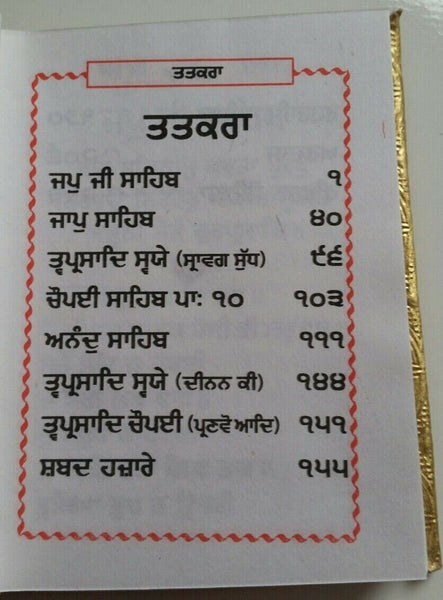 ਤਤਕਰਾ
ਤਤਕਰਾ
ਜਪੁ ਜੀ ਸਾਹਿਬ ੧
ਜਾਪੁ ਸਾਹਿਬ ੪੦
ਤ੍ਵਪ੍ਰਸਾਦਿ ਸ੍ਵਯੇ (ਸ੍ਰਾਵਗ ਸੁੱਧ) ੯੬
ਚੌਪਈ ਸਾਹਿਬ ਪਾ: ੧੦ ੧੦੩
ਅਨੰਦੁ ਸਾਹਿਬ ੧੧੧
ਤ੍ਵਪ੍ਰਸਾਦਿ ਸ੍ਵਯੇ (ਦੀਨਨ ਕੀ) ੧੪੪
ਤ੍ਵਪ੍ਰਸਾਦਿ ਚੌਪਈ (ਪ੍ਰਣਵੋ ਆਦਿ) ੧੫੧
ਸ਼ਬਦ ਹਜ਼ਾਰੇ ੧੫੫